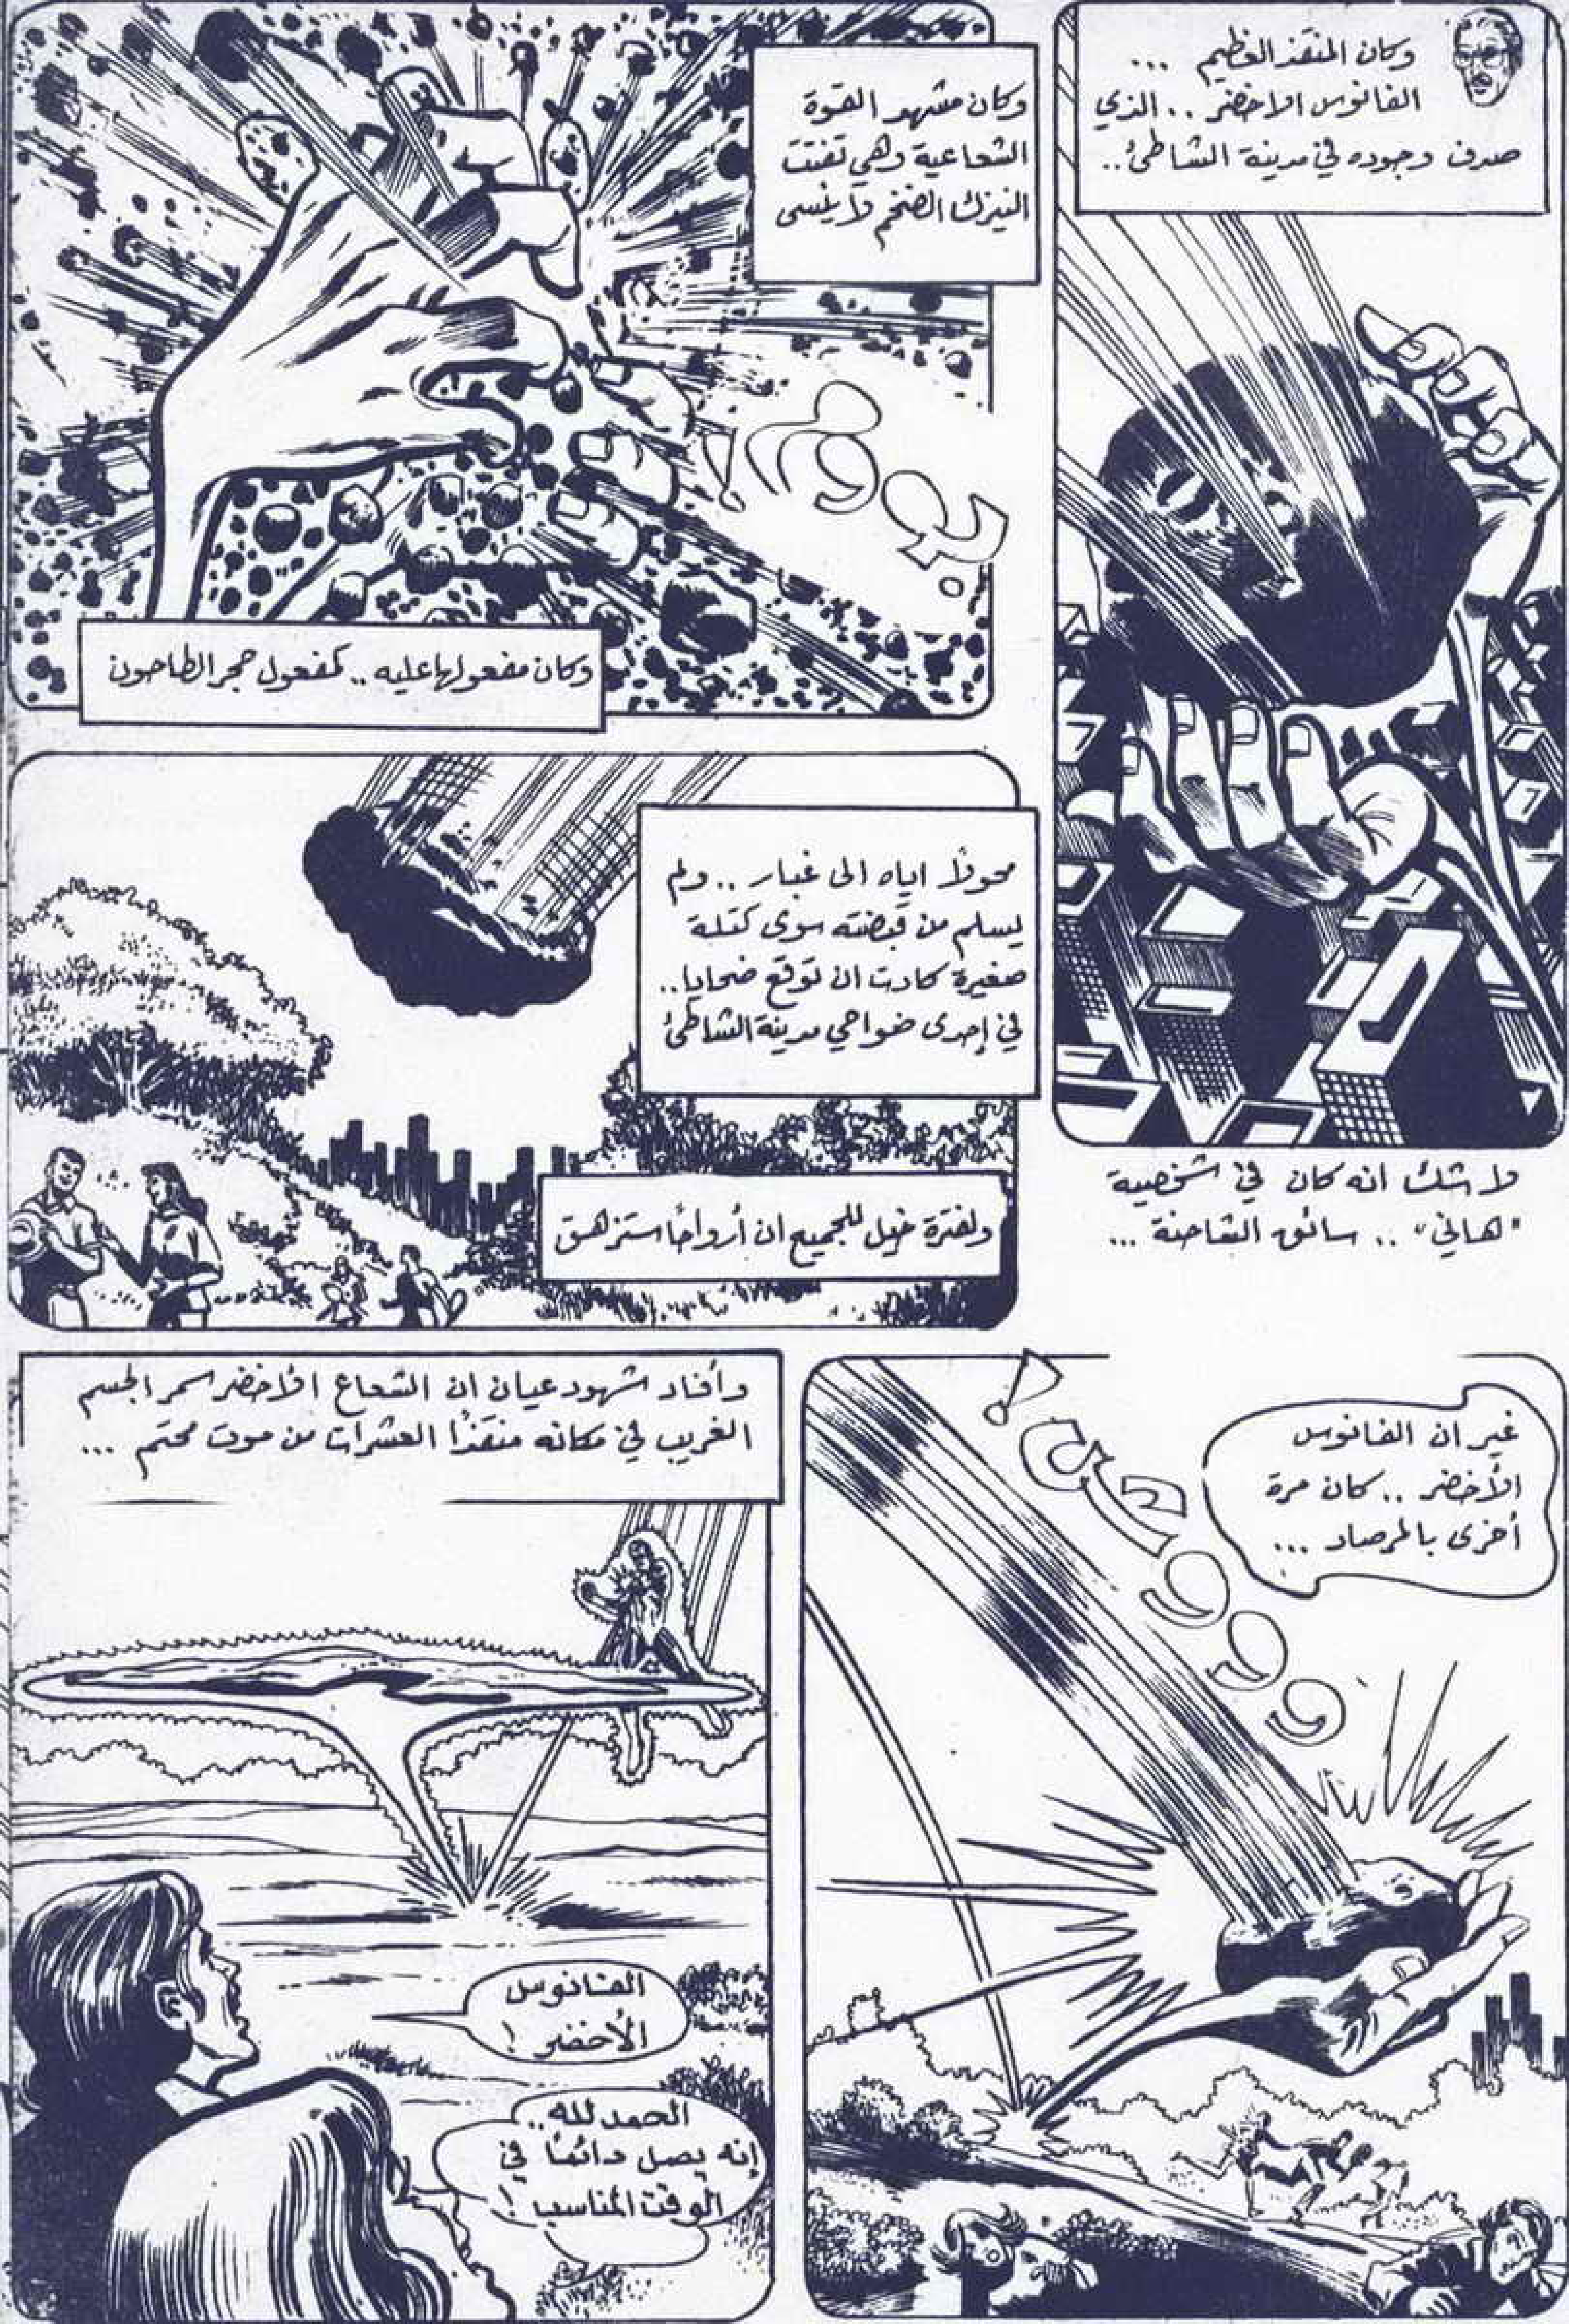 وكان المنقذ العظيم ...
الفانوس الاخضر .. الذي
صدف وجوده في مدينة الشاطئ ..
ولا شك انه كان في شخصية
"هاني" .. سائق الشاحنة ...
وكان مشهد القوة
الشعاعية وهي تفتت
النيزك الضخم لا ينسى
بووم!
وكان مفعولها عليه .. كمفعول حجر الطاحون
محولاً اياه الى غبار .. ولم
يسلم من قبضته سوى كتلة
صغيرة كادت ان توقع ضحايا ..
في إحدى ضواحي مدينة الشاطئ
ولفترة خيل للجميع ان أرواحًا ستزهق
غير ان الفانوس
الأخضر .. كان مرة
أخرى بالمرصاد ...
وأفاد شهود عيان ان الشعاع الأخضر سمر الجسم
الغريب في مكانه منقذًا العشرات من موت محتم ...
الفانوس
الأخضر!
الحمد لله ..
إنه يصل دائمًا في
الوقت المناسب!